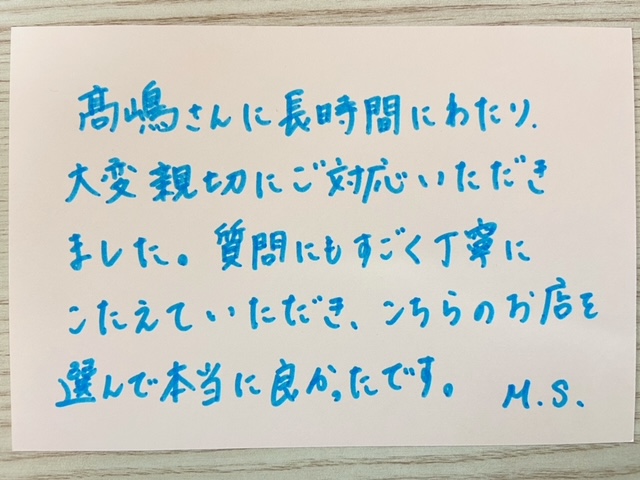 髙嶋さんに長時間にわたり、
大変親切にご対応いただき
ました。質問にもすごく丁寧に
こたえていただき、こちらのお店を
選んで本当に良かったです。 M.S.